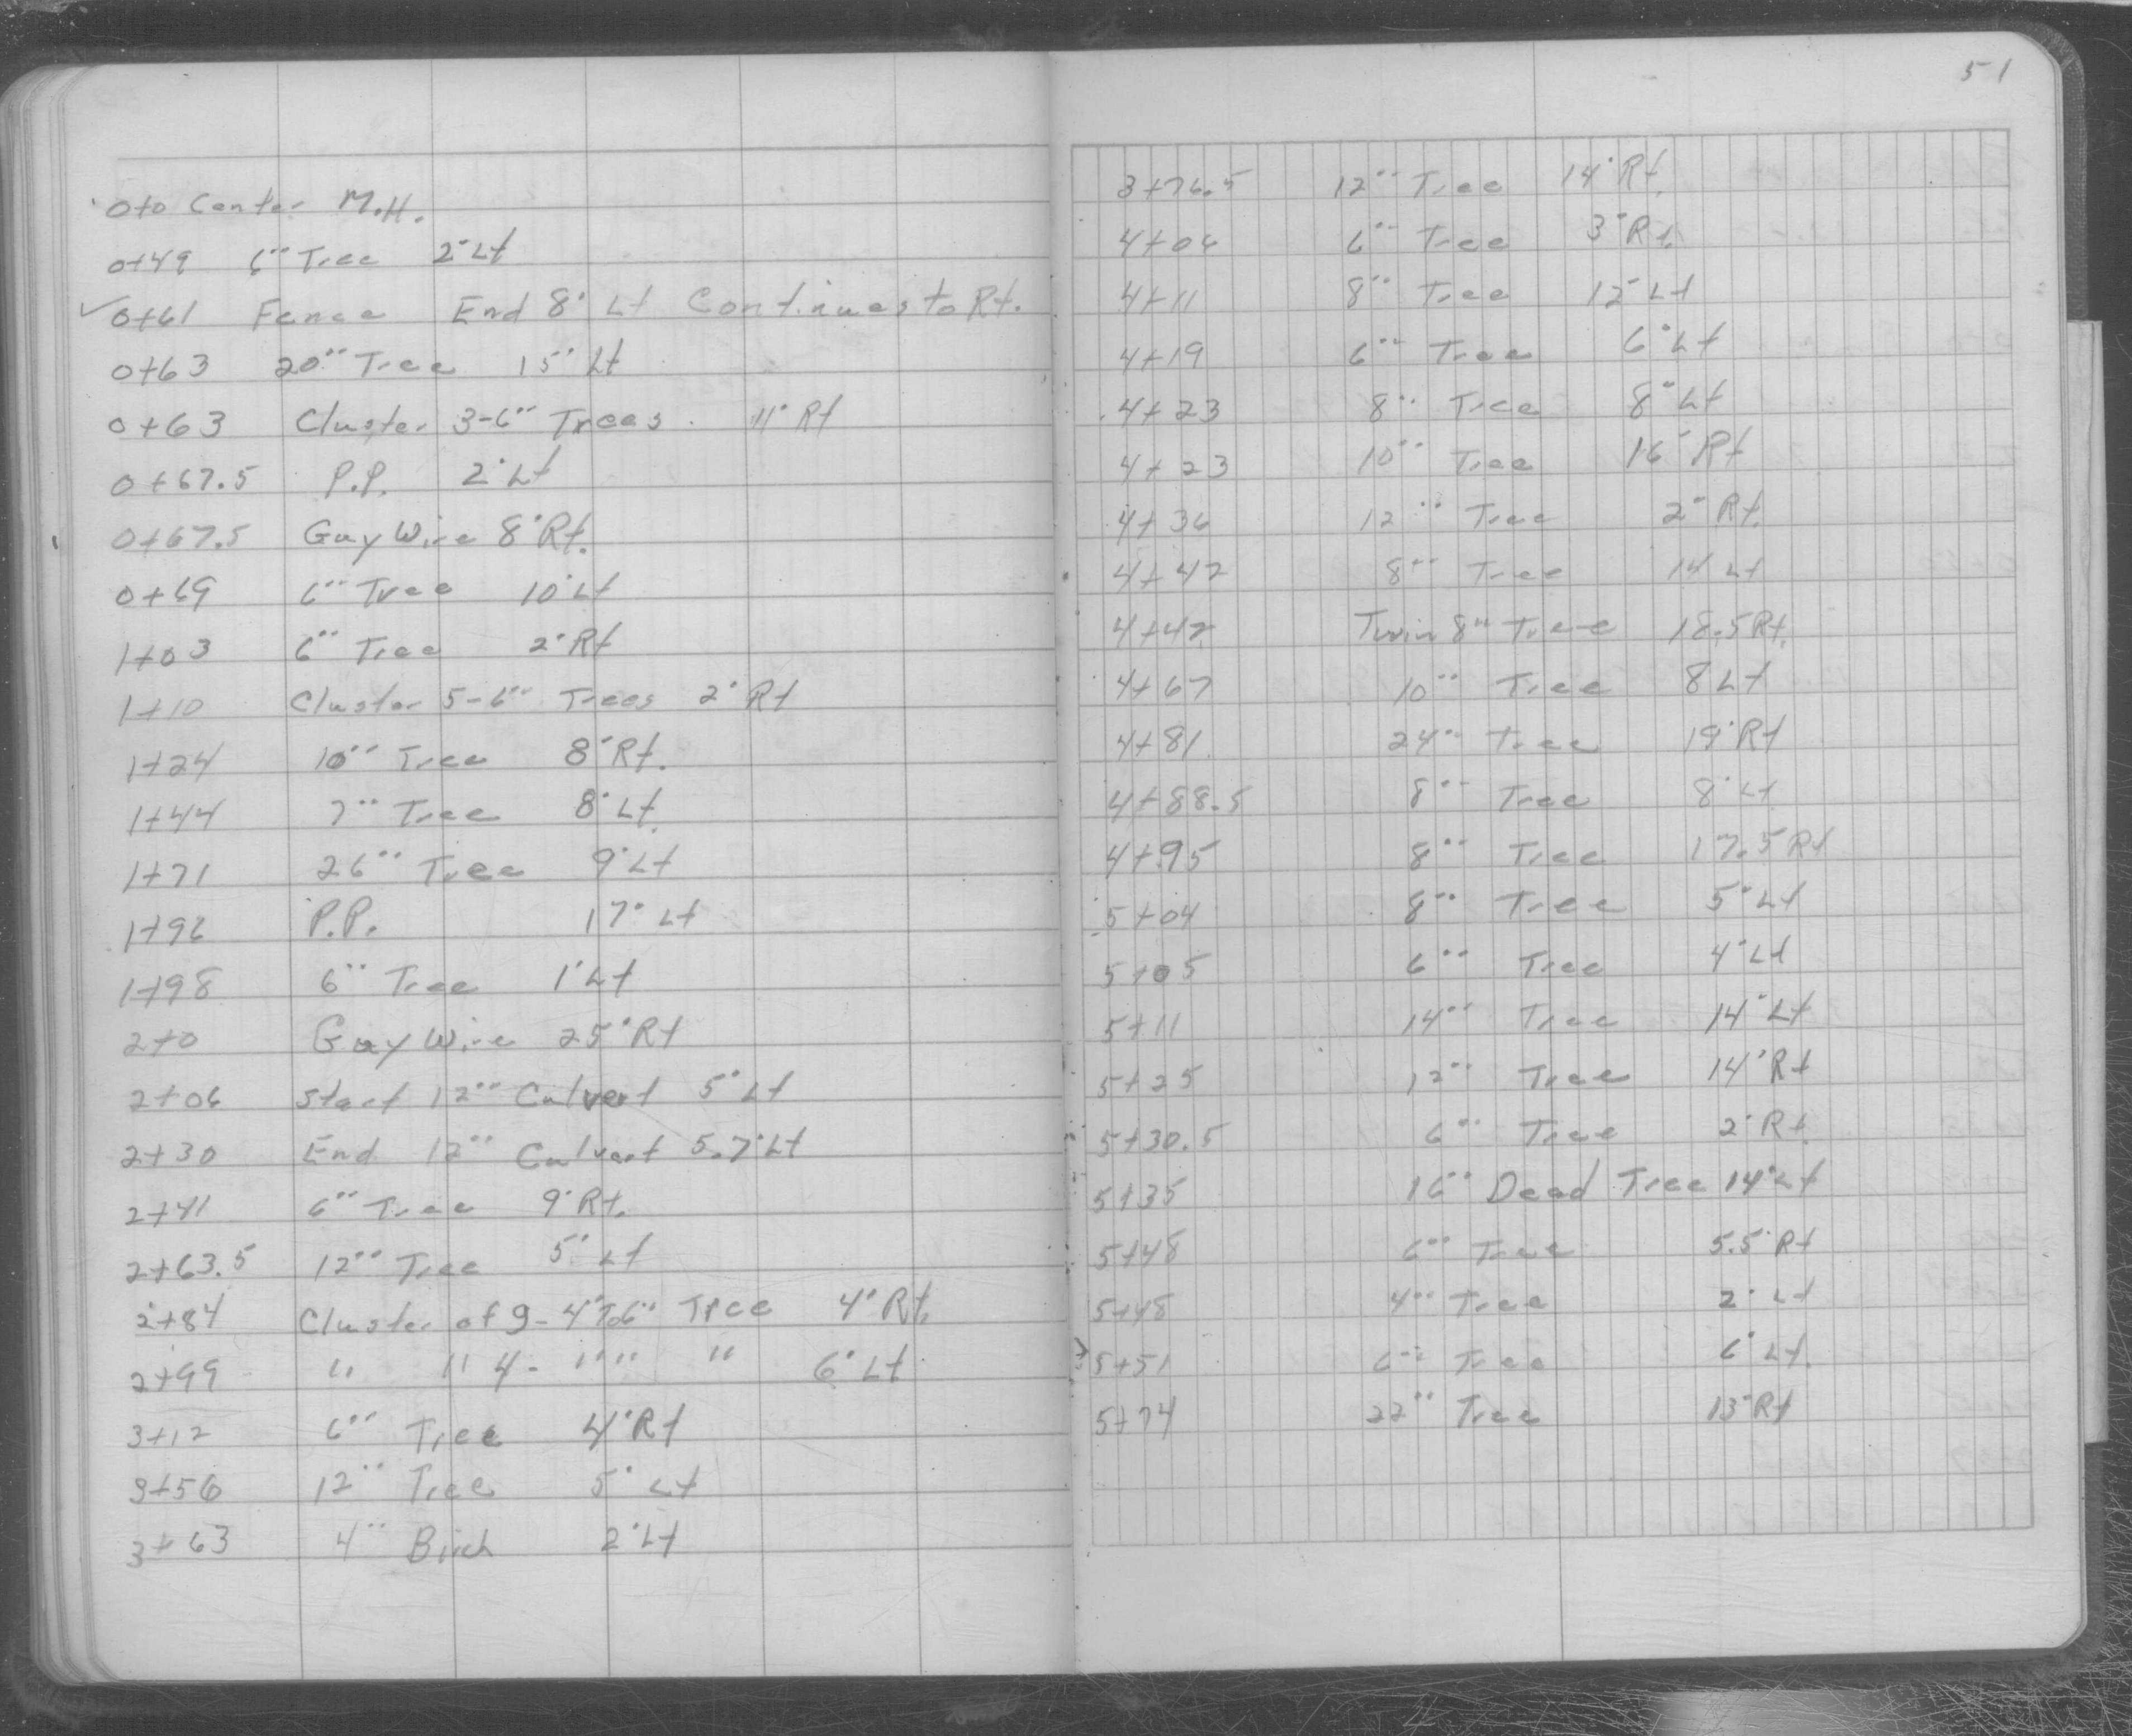 0+0 Center M.H.
0+49 6" Tree 2' Lt
✓ 0+61 Fence End 8' Lt Continues to Rt.
0+63 20" Tree 15' Lt
0+63 Cluster 3-6" Trees. 11' Rt
0+67.5 P.P. 2' Lt
0+67.5 Guy Wire 8' Rt.
0+69 6" Tree 10' Lt
1+03 6" Tree 2' Rt
1+10 Cluster 5-6" Trees 2' Rt
1+24 10" Tree 8' Rt.
1+44 7" Tree 8' Lt.
1+71 26" Tree 9' Lt
1+96 P.P. 17' Lt
1+98 6" Tree 1' Lt
2+0 Guy Wire 25' Rt
2+06 Start 12" Culvert 5' Lt
2+30 End 12" Culvert 5.7' Lt
2+41 6" Tree 9' Rt.
2+63.5 12" Tree 5' Lt
2+84 Cluster of 9-4"To6" Tree 4' Rt.
2+99 " " 4- " " " 6' Lt
3+12 6" Tree 4' Rt
3+56 12" Tree 5' Lt
3+63 4" Birch 2' Lt
51
3+76.5 12" Tree 14' Rt.
4+06 6" Tree 3' Rt.
4+11 8" Tree 12' Lt
4+19 6" Tree 6' Lt
4+23 8" Tree 8' Lt
4+23 10" Tree 16' Rt
4+36 12" Tree 2' Rt.
4+42 8" Tree 14' Lt
4+42 Twin 8" Tree 18.5 Rt.
4+67 10" Tree 8 Lt
4+81 24" Tree 19' Rt
4+88.5 8" Tree 8' Lt
4+95 8" Tree 17.5 Rt
5+04 8" Tree 5' Lt
5+05 6" Tree 4' Lt
5+11 14" Tree 14' Lt
5+25 12" Tree 14' Rt
5+30.5 6" Tree 2' Rt
5+35 16" Dead Tree 14' Lt
5+48 6" Tree 5.5' Rt
5+48 4" Tree 2' Lt
5+51 6" Tree 6' Lt.
5+74 22" Tree 13' Rt